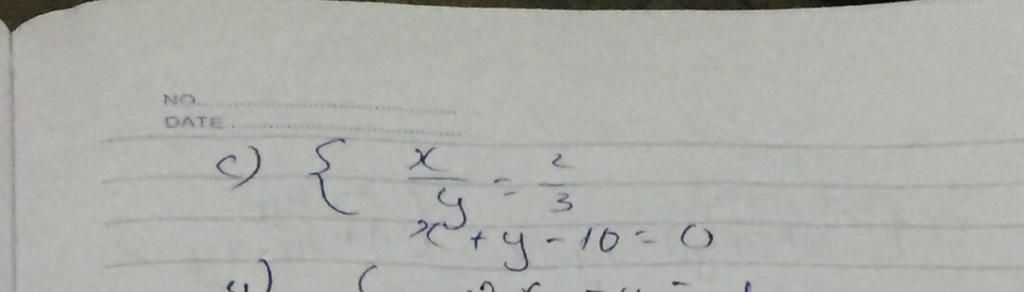 NO.
DATE
c) { x/y = 2/3
x + y - 10 = 0